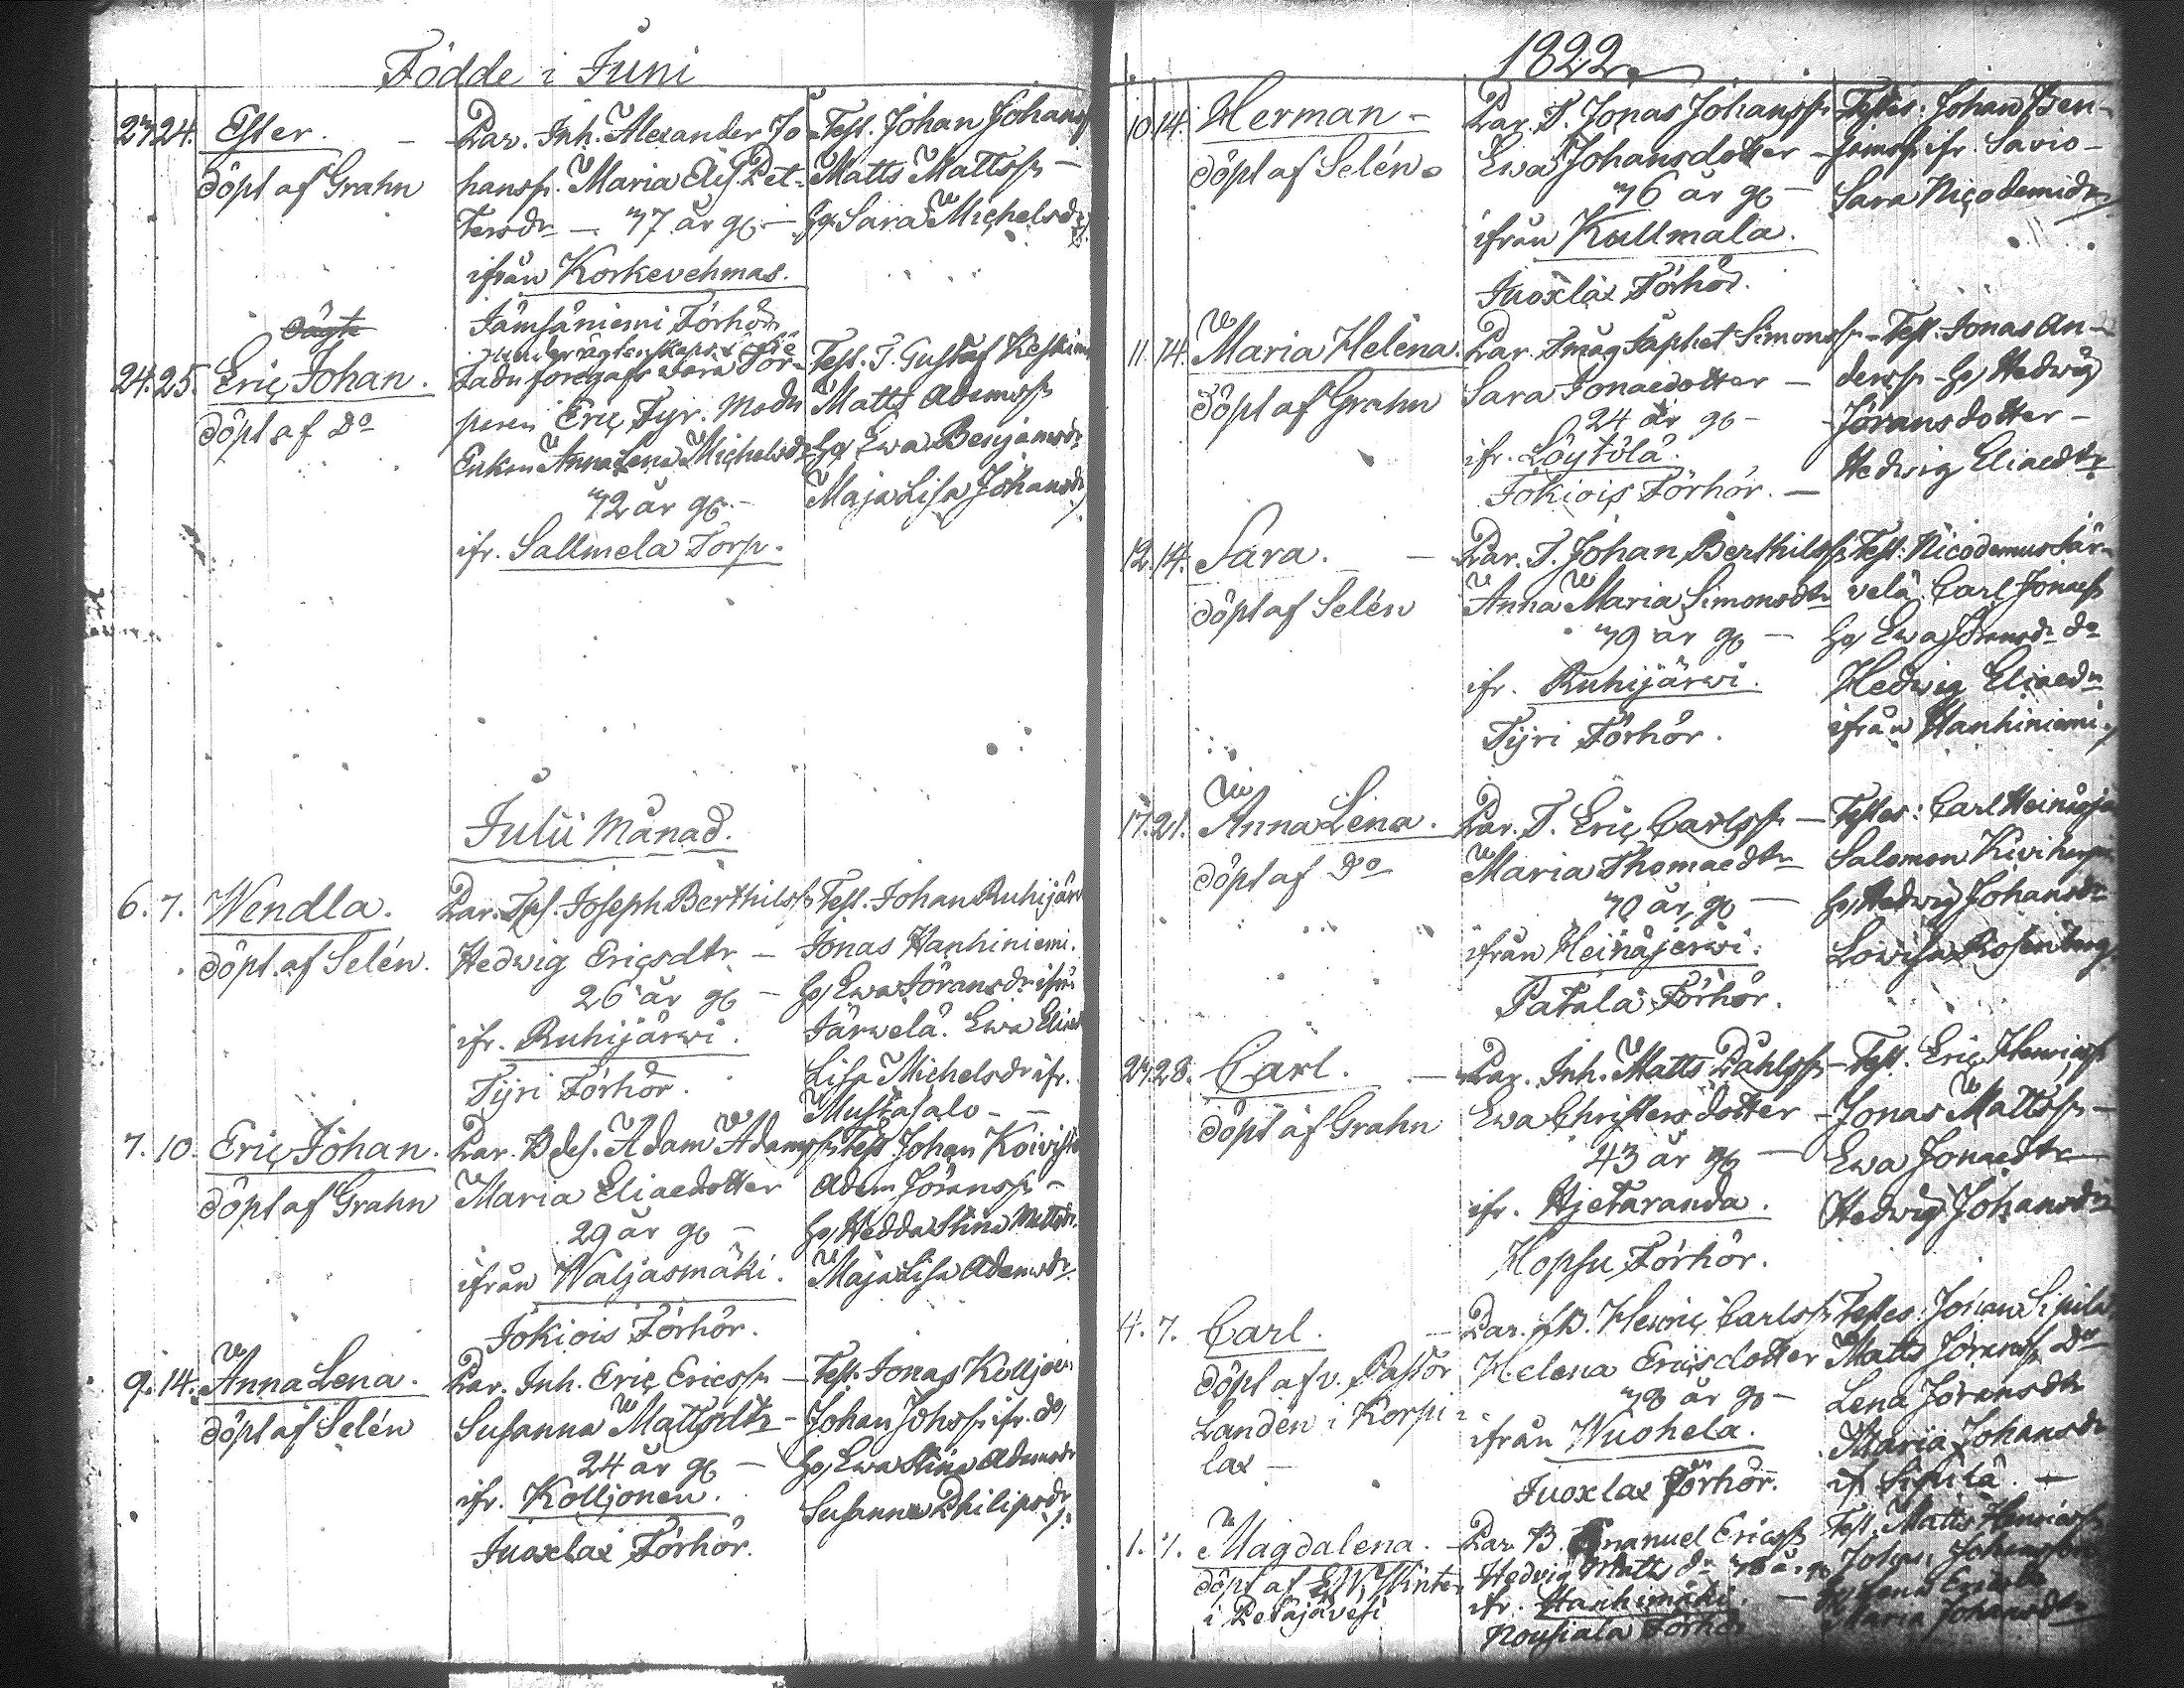 Födde i Juni
23. 24. Ester.
döpt af Grahn
Par. Inh. Alexander Jo
hanss. Maria Pet
tersdr — 37 år g.
ifrån Korkevehmas.
Jämsäniemi Förhör
Test. Johan Johans
Matts Mattss. —
Hq Sara Michelsdr
24. 25. Eric Johan.
döpt af Do
Fadn föregafs vara Tor-
paren Eric Tyr. Modn
Enkan Anna Lena Michelsdr
32 år g. —
ifr. Sallmela Torp.
Test. T. Gustaf Keskinen
Matts Adamss.
Hq Ewa Benjamsdr
Maja Lisa Johansdr
Julii Månad.
6. 7. Wendla.
döpt af Selén.
Par. Joseph Berthilss.
Hedwig Ericsdtr —
26 år g. —
ifr. Ruhijärwi.
Tyri Förhör.
Test. Johan Ruhijärw
Jonas Hanhiniemi.
Hq Ewa Göransdr ifrån
Järwelä. Ewa Elias
Lisa Michelsdr ifr.
Mustasalo —
7. 10. Eric Johan.
döpt af Grahn
Par. Adam Adamss.
Maria Eliaedotter
29 år g. —
ifrån Waljasmäki.
Jokiois Förhör.
Test. Johan Koivisto
Adam Jöranss. —
Hq Hedda Stina Mattsdr.
Maja Lisa Adamsdr.
9. 14. Anna Lena.
döpt af Selén
Par. Inh. Eric Ericss. —
Susanna Mattsdtr —
24 år g. —
ifr. Kolljonen.
Juoxlax Förhör.
Test. Jonas Kolljon
Johan Johss. ifr. do
Hq Ewa Stina Adamsdr
Susanna Philipsdr
1822.
10. 14. Herman —
döpt af Selén.
Par. T. Jonas Johanss.
Ewa Johansdotter —
36 år g. —
ifrån Kullmala.
Juoxlax Förhör.
Testes: Johan Ben-
jamss. ifr. Savio —
Sara Nicodemidr
11. 14. Maria Helena.
döpt af Grahn
Par. Tmåg Japhet Simonss.
Sara Jonaedotter —
24 år g. —
ifr. Löytölä.
Jokiois Förhör. —
Test. Jonas An-
derss. Hq Hedwig
Jöransdotter —
Hedwig Eliaedtr
12. 14. Sara. —
döpt af Selén
Par. T. Johan Berthilss.
Anna Maria Simonsdtr
39 år g. —
ifr. Ruhijärwi.
Tyri Förhör.
Test: Nicodemus Jär-
velä. Carl Jonaess
Hq Ewa Jöransdr do
Hedwig Eliaedr
ifrån Hanhiniemi.
17. 21. Anna Lena.
döpt af Do
Par. T. Eric Carlss. —
Maria Thomaedtr
30 år g. —
ifrån Heinäjerwi.
Patala Förhör.
Testes: Carl Heinäjä
Salomon
Hq Hedwig Johansdr
Lowisa Rosenberg
27. 28. Carl. —
döpt af Grahn
Par. Inh. Matts Påhlss.
Ewa Christersdotter —
43 år g. —
ifr. Hjetaranda.
Hopsu Förhör.
Test. Eric Henricss
Jonas Mattss. —
Ewa Jonaedtr
Hedwig Johansdr
4. 7. Carl. —
döpt af v. Pastor
Landén i Korpi-
lax —
Par. Henric Carlss.
Helena Ericsdotter
38 år g. —
ifrån Wuohela.
Juoxlax Förhör.
Testes: Johan Sipilä
Matts Jöranss. do
Lena Jöransdtr
Maria Johansdr
if Sipilä. —
1. 7. Magdalena. —
döpt af Winter
i Petäjävesi
Par. B. Emanuel Ericss
Hedvig Matts dr 38 år g.
ifr. Hanhimäki. —
Nousiala Förhör
Test. Matts Henricss.
Maria Johansdtr